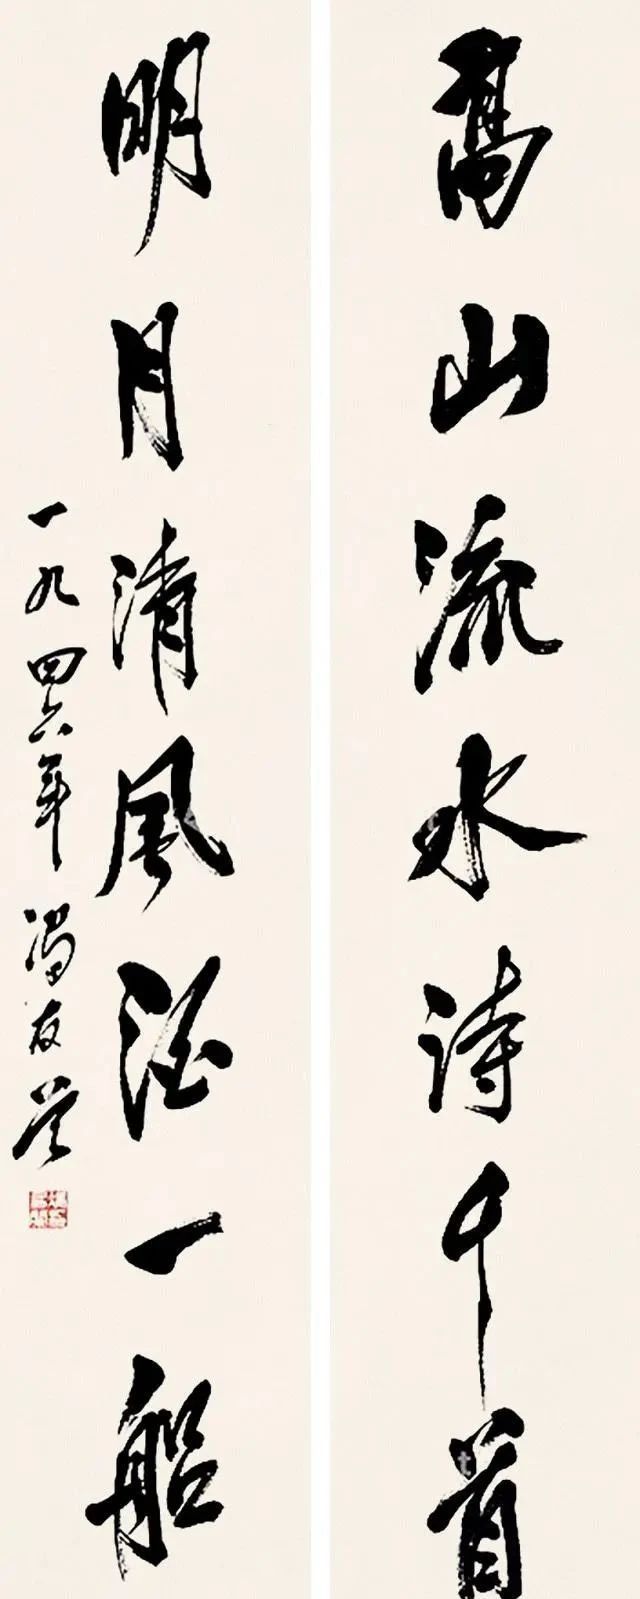 高山流水詩千首
明月清風酒一船
一九四六年馮友蘭